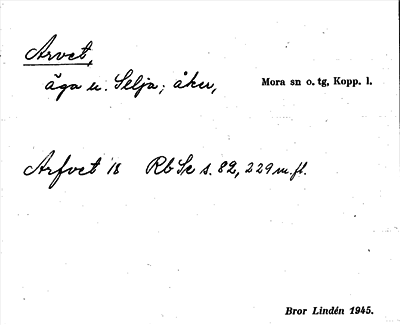 Arvet,
äga u. Selja; åker,
Mora sn o. tg, Kopp. l.
Arfvet 18 Rb Se s. 82, 229 m. fl.
Bror Lindén 1945.